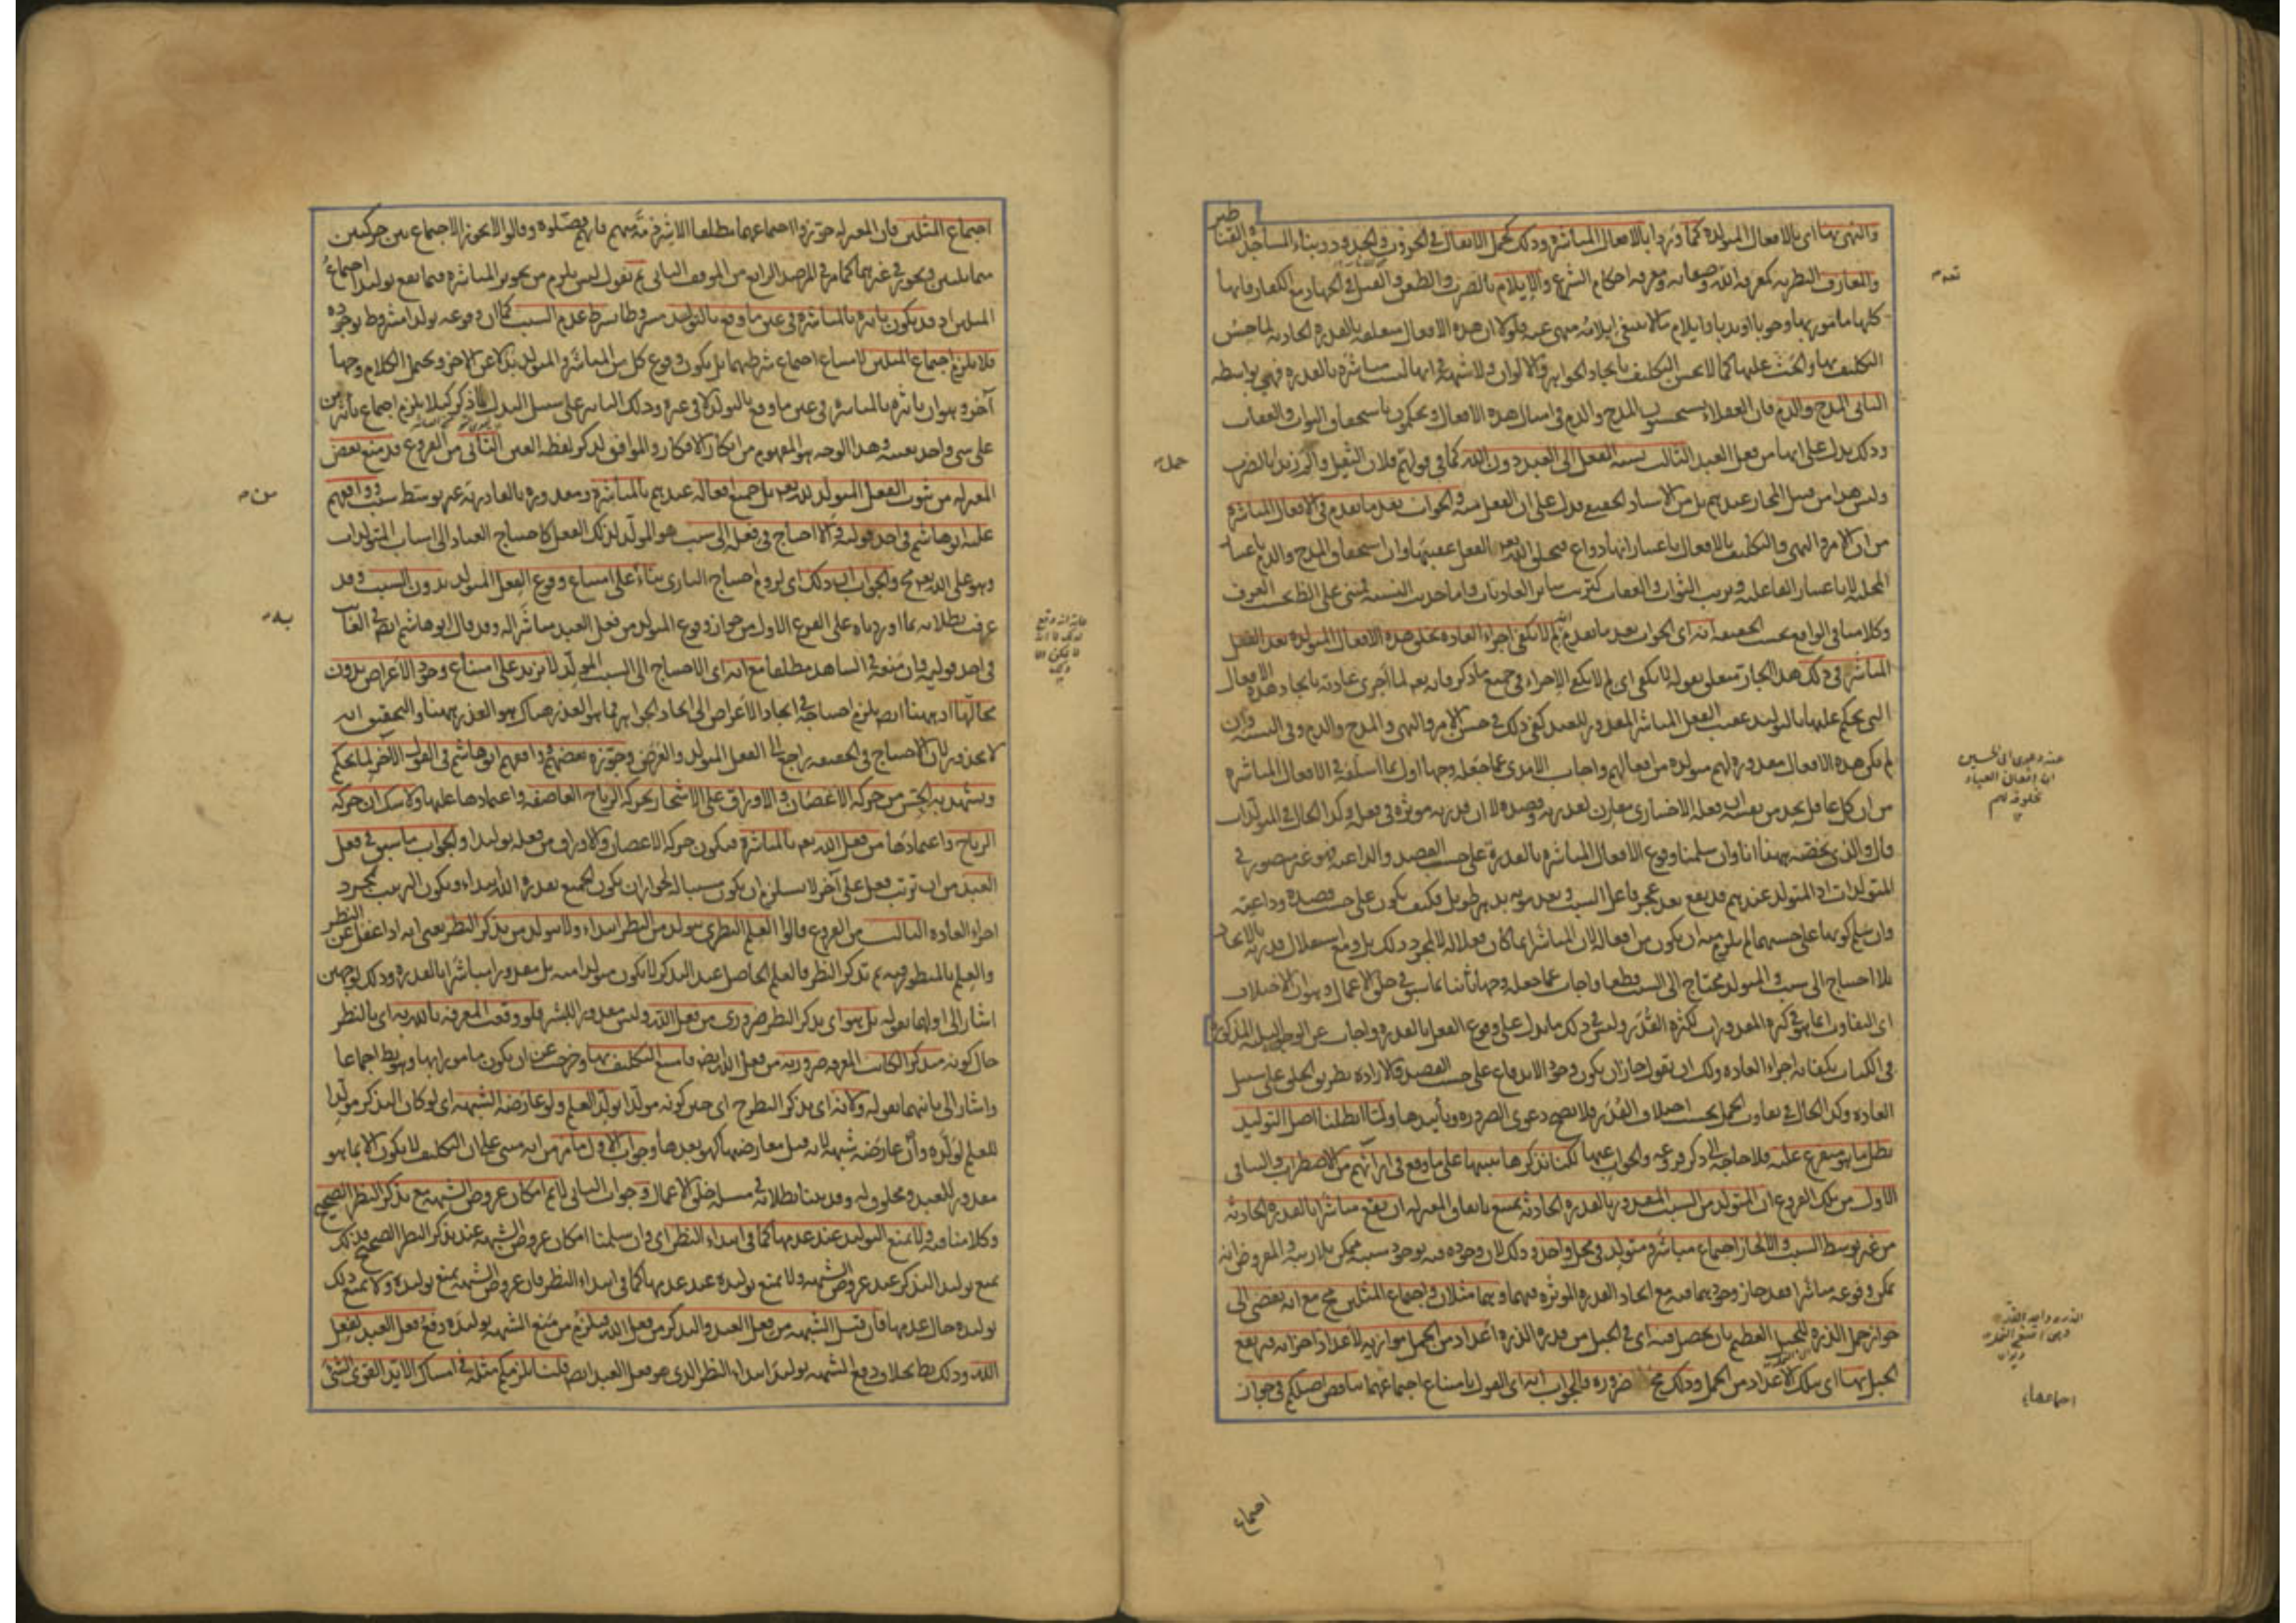 والنهي بها اى بالافعال المتولدة كما وردا بالافعال المباشرة وذلك كحمل الاثقال في الحروب والحدود وبناء المساجد والقناطير
والمعارف النظرية كمعرفة الله وصفاته ومعرفة احكام الشرع والايلام بالضرب والطعن والقتل في الجهاد مع الكفار فانها
كلها مامور بها وجوبا او ندبا وايلام ما لا ينبغي ايلامه منهي عنه فلولا ان هذه الافعال متعلقة بالقدرة الحادثة لما حسن
التكليف بها والحث عليها كما لا يحسن التكليف بايجاد الجواهر والالوان ولا شبهة في انها ليست مباشرة بالقدرة فهي بواسطة
الثاني المدح والذم فان العقلاء يستحسنون المدح والذم في امثال هذه الافعال ويحكمون باستحقاق الثواب والعقاب
وذلك يدل على انها من فعل العبد الثالث نسبة الفعل الى العبد دون الله كما في قولهم فلان الثقيل والم زيدا بالضرب
وليس هذا من قبيل المجاز عندهم بل من الاسناد الحقيقي فدل على ان الفعل منه والجواب بعد ما تقدم في الافعال المباشرة
من ان الامر والنهي والتكليف بالافعال باعتبار انها دواع فيخلق الله تعه الفعل عقيبها وان استحقاق المدح والذم باعتبار
المحلية لا باعتبار الفاعلية وترتب الثواب والعقاب كترتب سائر العاديات واما حديث النسبة فمبني على الظ بحسب العرف
وكلامنا في الواقع بحسب الحقيقة انه اى الجواب بعد ما تقدم انه لم لا يكفي اجراء العادة بخلق هذه الافعال المتولدة بعد الفعل
المباشر في ذلك هذا الجار متعلق بقوله لا يكفي اى لم لا يكفي الاجراء في جميع ما ذكر فانه تعه لما اجرى عادته بايجاد هذه الافعال
التي يحكم عليها بالتوليد عقيب الفعل المباشر المقدور للعبد كفى ذلك في حسن الامر والنهي والمدح والذم وفي النسبة وان
لم يكن هذه الافعال مقدورة لهم متولدة من افعالهم واجاب الامدي عما جعله وجها اول بما اسلفه في الافعال المباشرة
من ان كل عاقل يجد من نفسه ان فعله الاختياري مقارن لقدرته وقصده لا ان قدرته موثرة في فعله وكذا الحال في المتولدات
قال والذي يخصه ههنا انا وان سلمنا وقوع الافعال المباشرة بالقدرة على حسب القصد والداعية فهو غير متصور في
المتولدات اذ المتولد عندهم قد يقع بعد عجز فاعل السبب وبعد موته بدهر طويل فكيف يكون على حسب قصده وداعيته
وان سلم كونها على حسبهما لم يلزم منه ان يكون من افعاله لان المباشر انما كان فعلا له لا لمجرد ذلك بل ومع استقلال قدرته بالايجاد
بلا احتياج الى سبب والمتولد محتاج الى السبب قطعا واجاب عما جعله وجها ثانيا بما سبق في خلق الاعمال وهو ان الاختلاف
اى التفاوت انما هو في كثرة المقدورات لكثرة القدر وليس في ذلك ما يدل على وقوع الفعل بالقدرة واجاب عن الوجوه الثلثة المذكورة
في الكتاب بكفاية اجراء العادة ولك ان تقول جاز ان يكون وجود الاندفاع على حسب القصد والارادة بطريق الخلق على سبيل
العادة وكذا الحال في تفاوت الحمل بحسب اختلاف القدر فلا يصح دعوى الضرورة وتاييدها ولما ابطلنا اصل التوليد
بطل ما هو متفرع عليه فلا حاجة الى ذكر فروعه والجواب عنها لكنا نذكرها تنبيها على ما وقع في ارائهم من الاضطراب والتنافي
الاول من تلك الفروع ان المتولد من السبب المقدور بالقدرة الحادثة يمتنع باتفاق المعتزلة ان يقع مباشرا بالقدرة الحادثة
من غير توسط السبب والا لجاز اجتماع مباشر ومتولد في محل واحد وذلك لان وجوده فيه بوجود سببه ممكن بلا ريبة والمفروض انه
يمكن وقوعه مباشرا فقد جاز وجودهما فيه مع اتحاد القدرة الموثرة فيهما وهما مثلان واجتماع المثلين مح مع انه يفضي الى
جواز حمل الذرة للجبل العظيم بان يحصل فيه اى في الجبل من قدرة الذرة اعداد من الحمل موازية لاعداد اجزائه فيرتفع
الجبل بها اى بتلك الاعداد من الحمل وذلك مح ضرورة والجواب انه اى القول بامتناع اجتماعهما يناقض اصلكم في جواز
اجتماع
اجتماع المثلين فان المعتزلة جوزوا اجتماعهما مطلقا الا شرذمة منهم فانهم فصلوه وقالوا لا يجوز الاجتماع بين حركتين
متماثلتين ويجوز في غيرهما كما مر في المرصد الرابع من الموقف الثاني ثم نقول ليس يلزم من تجويز المباشرة فيما يقع توليدا اجتماع
المثلين اذ قد يكون تاثيره بالمباشرة في عين ما وقع بالتوليد مشروطا بشرط عدم السبب كما ان وقوعه تولدا مشروط بوجوده
فلا يلزم اجتماع المثلين لامتناع اجتماع شرطيهما بل يكون وقوع كل من المباشر والمتولد بدلا عن الاخر ويحتمل الكلام وجها
آخر وهو ان تاثيره بالمباشرة في عين ما وقع بالتوليد لا في غيره وذلك التاثير على سبيل البدل كما ذكر كيلا يلزم اجتماع تاثيرين
على شي واحد بعينه وهذا الوجه هو المفهوم من ابكار الافكار والموافق لذكر لفظة العين الثاني من الفروع قد منع بعض
المعتزلة من ثبوت الفعل المتولد لله تعه بل جميع افعاله عندهم بالمباشرة ومقدورة بالقادرية غير توسط سبب ووافقهم
عليه ابو هاشم في احد قوليه والا احتاج في فعله الى سبب هو المولد لذلك الفعل كاحتياج العباد الى اسباب المتولدات
وهو على الله تعه مح والجواب ان ذلك اى لزوم احتياج الباري بناء على امتناع وقوع الفعل المتولد بدون السبب وقد
عرفت بطلانه بما اوردناه على الفرع الاول من جواز وقوع المتولد من فعل العبد مباشرا له وقد قال ابو هاشم ايضا في الغائب
في احد قوليه وان منعه في الشاهد مطلقا مع انه اى الاحتياج الى السبب المولد لا يزيد على امتناع وجود الاعراض بدون
محالها اذ ههنا ايضا يلزم احتياجه في ايجاد الاعراض الى ايجاد الجواهر فما هو العذر هناك هو العذر ههنا والتحقيق انه
لا محذور لان الاحتياج في الحقيقة راجع الى الفعل المتولد والغرض وجوزه بعضهم ووافقهم ابو هاشم في القول الاخر لما يحكم
ويشهد به الحس من حركة الاغصان والاوراق على الاشجار بحركة الرياح العاصفة واعتمادها عليها ولا شك ان حركة
الرياح واعتمادها من فعل الله تعه بالمباشرة فيكون حركة الاغصان والاوراق من فعله توليدا والجواب ما سبق في فعل
العبد من ان ترتب فعل على آخر لا يستلزم ان يكون سببا له لجواز ان يكون الجميع بقدرة الله ابتداء ويكون الترتيب بمجرد
اجراء العادة الثالث من الفروع قالوا العلم النظري يتولد من النظر ابتداء ولا يتولد من تذكر النظر يعني انه اذا غفل عن النظر
والعلم بالمنظور فيه ثم تذكر النظر فالعلم الحاصل عند التذكر لا يكون متولدا منه بل مقدورا مباشرا بالقدرة وذلك لوجهين
اشار الى اولهما بقوله بل هو اى تذكر النظر ضروري من فعل الله وليس مقدورا للبشر فلو وقعت المعرفة بالله به اى بالنظر
حال كونه متذكرا لكانت المعرفة ضرورية من فعل الله ايضا فامتنع التكليف بها وخرجت عن ان يكون مامورا بها وهو بط اجماعا
واشار الى ثانيهما بقوله ولانه اى تذكر النظر ح اى حين كونه مولدا تولد العلم ولو عارضه الشبهة اى لو كان التذكر مولدا
للعلم لولده وان عارضه شبهة لانه قبل معارضتها كهو بعدها وجواب الاول ما مر من انه مبني على ان التكليف لا يكون الا بما هو
مقدور للعبد ومخلوق له وقد بينا بطلانه في مسئلة خلق الاعمال وجواب الثاني لا نم امكان عروض الشبهة مع تذكر النظر الصحيح
وكلامنا فيه ولا يمنع التوليد عند عدمها كما في ابتداء النظر اى وان سلمنا امكان عروض الشبهة عند تذكر النظر الصحيح فذلك
يمنع توليد التذكر عند عروض الشبهة ولا يمنع توليده عند عدمها كما في ابتداء النظر فان عروض الشبهة يمنع توليده ولا يمنع ذلك
توليده حال عدمها فان قيل الشبهة من فعل العبد والتذكر من فعل الله فيلزم من منع الشبهة توليده دفع فعل العبد لفعل
الله وذلك بط بخلاف دفع الشبهة توليد ابتداء النظر الذي هو فعل العبد ايضا قلت يلزمكم مثله في امساك الايد القوي الشئ